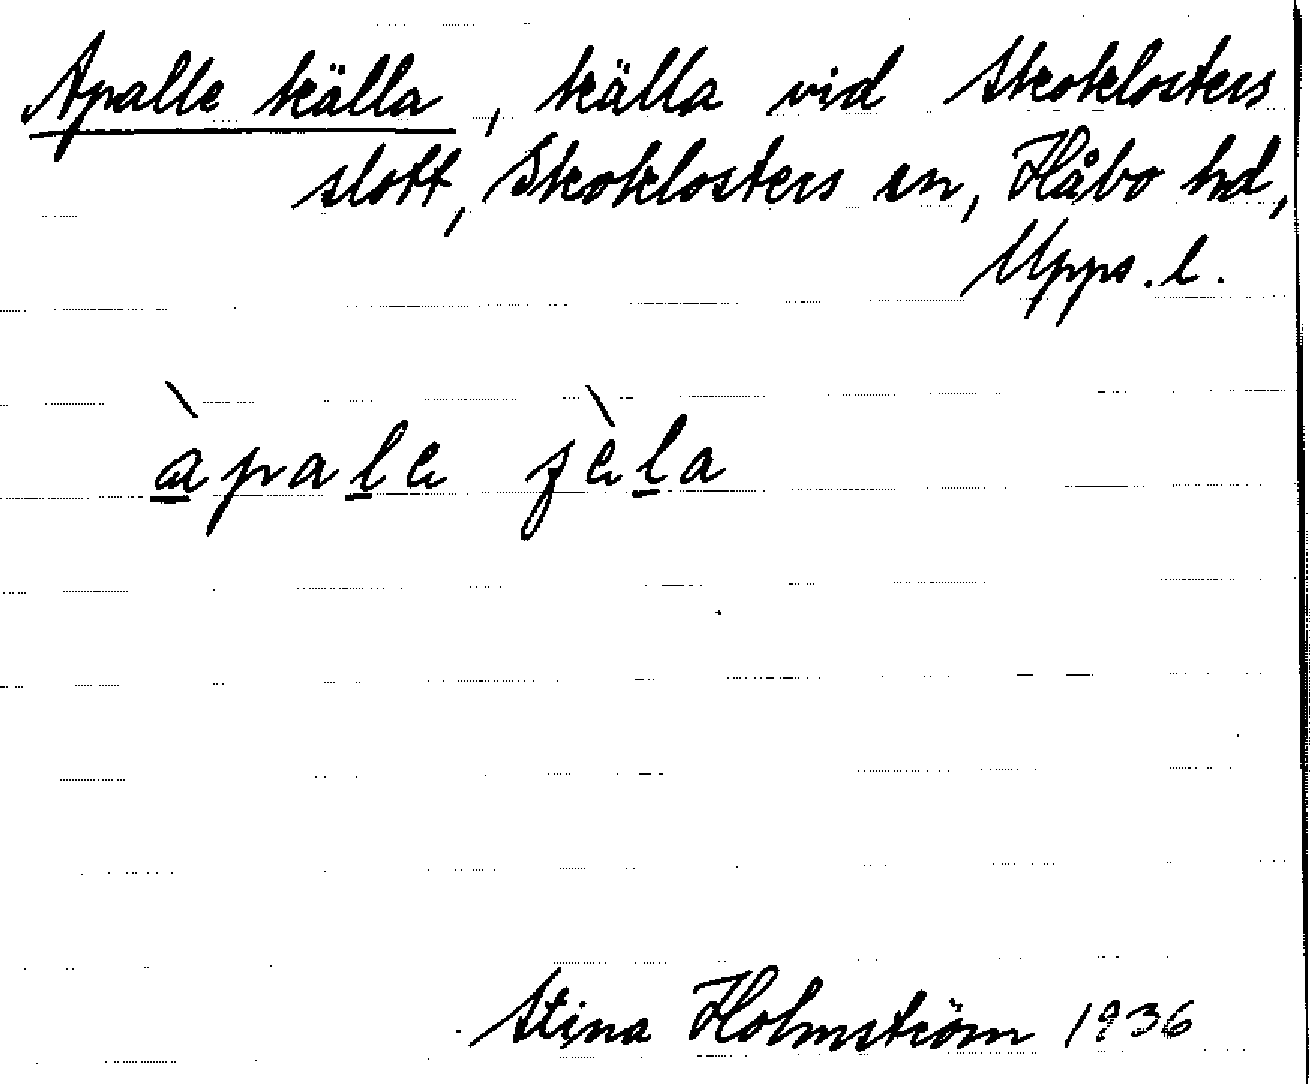 Apalle källa, källa vid Skoklosters
slott, Skoklosters sn, Håbo hd,
Upps. l.
àpale ʃèla
Stina Holmström 1936